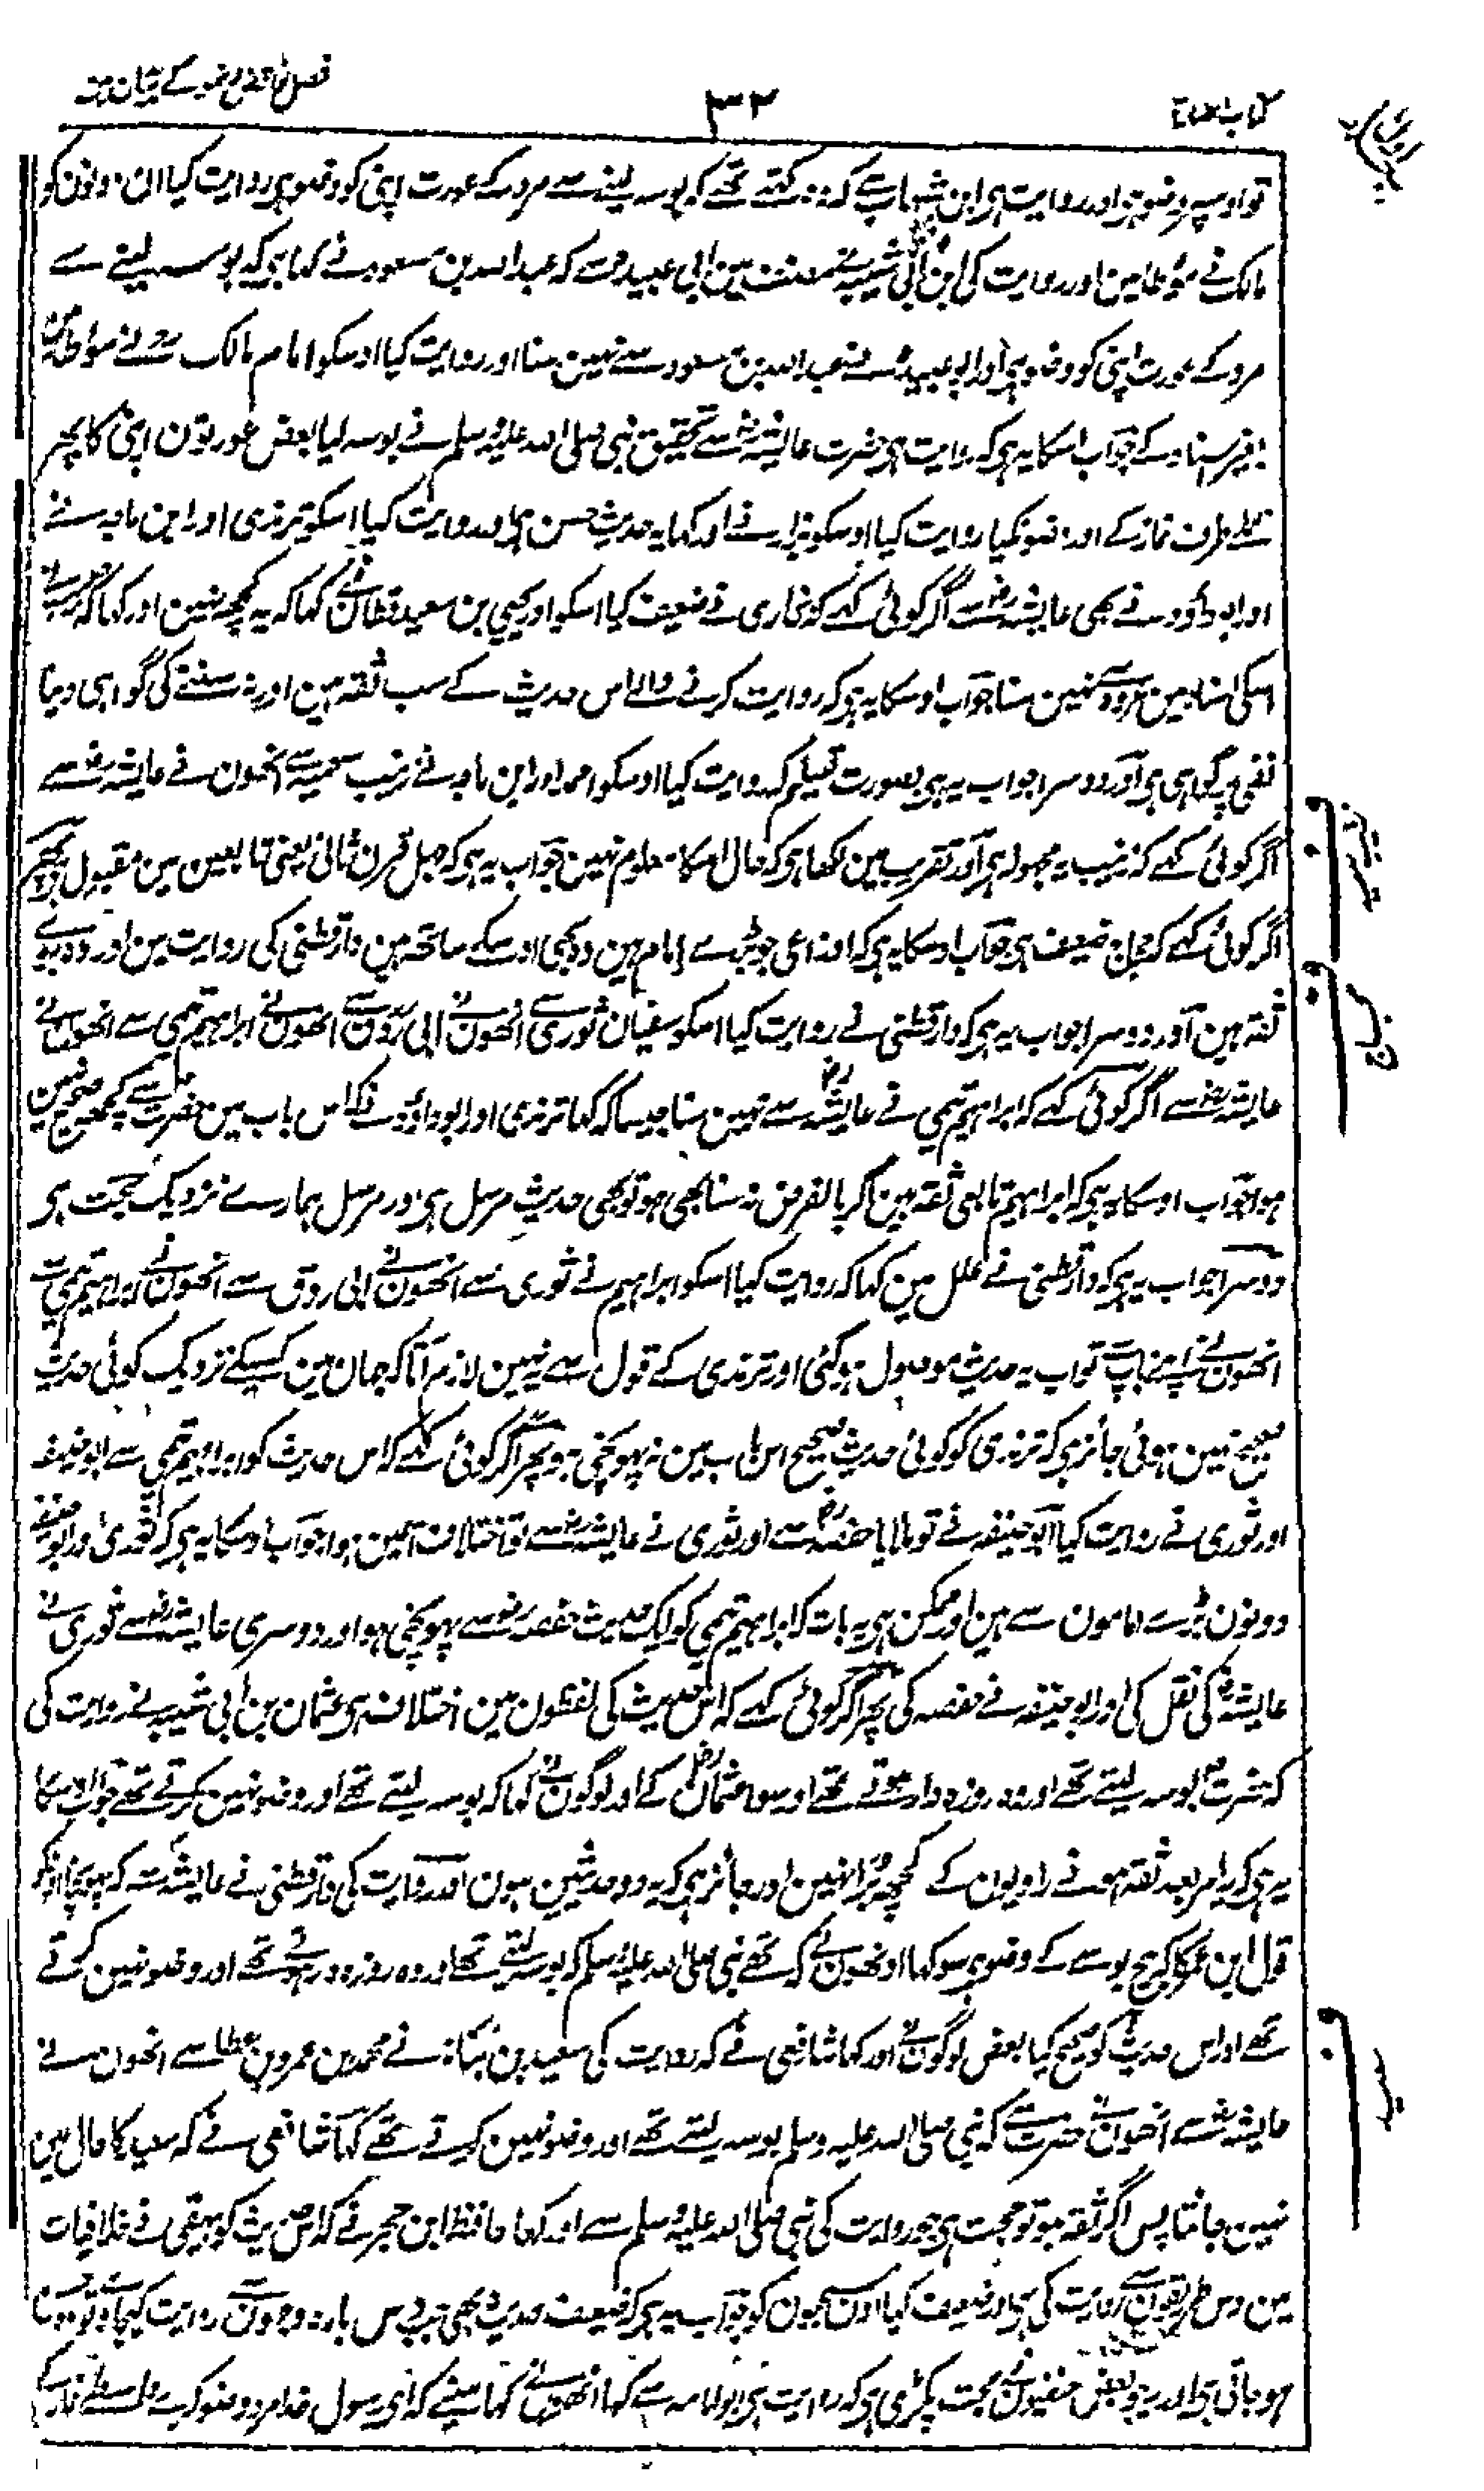 کتاب الطہارۃ
۳۲
فصل نواقض وضو کے بیان میں
تو اوسپر وضو ہی اور روایت ہی ابن شہاب سے کہ وہ کہتے تھے کہ بوسہ لینے سے مرد کے عورت اپنی کو وضو ہی روایت کیا ان دونون کو
مالک نے موطا مین اور روایت کی ابن ابی شیبہ نے مصنف مین ابی عبیدہ سے کہ عبداللہ بن مسعود نے کہا ہی کہ بوسہ لینے سے
مرد کے عورت اپنی کو وضو ہی اور ابو عبیدہ نے عبداللہ بن مسعود سے نہین سنا اور روایت کیا اوسکو امام مالک نے موطا مین
بغیر اسناد کے جواب اسکا یہ ہی کہ روایت ہی حضرت عایشہ سے تحقیق نبی صلی اللہ علیہ وسلم نے بوسہ لیا بعض عورتون اپنی کا پھر
نکلے طرف نماز کے اور وضو نکیا روایت کیا اوسکو بزار نے اور کہا یہ حدیث حسن ہی اور روایت کیا اسکو ترمذی اور ابن ماجہ نے
اور ابو داؤد نے بھی عایشہ سے اگر کوئی کہے کہ بخاری نے ضعیف کیا اسکو اور یحیی بن سعید قطان نے کہا کہ یہ کچھ نہین اور کہا کہ حبیب نے
اسکی اسناد مین عروہ سے نہین سنا جواب اوسکا یہ ہی کہ روایت کرنے والے اس حدیث کے سب ثقہ ہین اور نہ سننے کی گواہی دینا
نفی پر گواہی ہی اور دوسرا جواب یہ ہی بصورت تسلیم کہ روایت کیا اوسکو احمد اور ابن ماجہ نے زینب سہمیہ سے انھون نے عایشہ سے
اگر کوئی کہے کہ زینب یہ مجہولہ ہی اور تقریب مین لکھا ہی کہ حال اسکا معلوم نہین جواب یہ ہی کہ جہل قرن ثانی یعنی تابعین مین مقبول ہی پھر
اگر کوئی کہے کہ حجاج ضعیف ہی جواب اوسکا یہ ہی کہ اوزاعی جو بڑے امام ہین وہ بھی اوسکے ساتھ ہین دارقطنی کی روایت مین اور وہ بڑے
ثقہ ہین اور دوسرا جواب یہ ہی کہ دارقطنی نے روایت کیا اسکو سفیان ثوری سے انھون نے ابی روق سے انھون نے ابراہیم تیمی سے انھون نے
عایشہ سے اگر کوئی کہے کہ ابراہیم تیمی نے عایشہ سے نہین سنا جیسا کہ کہا ترمذی اور ابو داؤد نے کہ اس باب مین حضرت سے کچھ صحیح نہین
ہوا جواب اوسکا یہ ہی کہ ابراہیم تابعی ثقہ ہین اگر بالفرض نہ سنا بھی ہو تو بھی حدیث مرسل ہی اور مرسل ہمارے نزدیک حجت ہی
دوسرا جواب یہ ہی کہ دارقطنی نے علل مین کہا کہ روایت کیا اسکو ابراہیم نے ثوری سے انھون نے ابی روق سے انھون نے ابراہیم تیمی سے
انھون نے اپنے باپ سے تو اب یہ حدیث موصول ہوگئی اور ترمذی کے قول سے نہین لازم آتا کہ جہان مین کسیکے نزدیک کوئی حدیث
صحیح نہین ہوئی جائز ہی کہ ترمذی کو کوئی حدیث صحیح اس باب مین نہ پہونچی ہو پھر اگر کوئی کہے کہ اس حدیث کو ابراہیم تیمی سے ابو حنیفہ
اور ثوری نے روایت کیا ابو حنیفہ نے تو ملایا حفصہ سے اور ثوری نے عایشہ سے تو اختلاف اسمین ہوا جواب اوسکا یہ ہی کہ ثوری اور ابو حنیفہ
دونون بڑے امامون سے ہین اور ممکن ہی یہ بات کہ ابراہیم تیمی کو ایک حدیث حفصہ سے پہونچی ہو اور دوسری عایشہ سے ثوری نے
عایشہ کی نقل کی اور ابو حنیفہ نے حفصہ کی پھر اگر کوئی کہے کہ اس حدیث کی لفظون مین اختلاف ہی عثمان بن ابی شیبہ نے روایت کی
کہ حضرت بوسہ لیتے تھے اور وہ روزہ دار ہوتے تھے اور سوا عثمان کے اور لوگون نے کہا کہ بوسہ لیتے تھے اور وضو نہین کرتے تھے جواب اوسکا
یہ ہی کہ یہ امر بعد ثقہ ہونے راویون کے کچھ برا نہین اور جائز ہی کہ یہ دو حدیثین ہون اور روایت کی دارقطنی نے عایشہ سے کہ پہونچا اونکو
قول ابن عمر کا کہ بیچ بوسے کے وضو ہی سو کہا اونھون نے کہ تھے نبی صلی اللہ علیہ وسلم کہ بوسہ لیتے تھے اور وہ روزہ دار ہوتے تھے اور وضو نہین کرتے
تھے اور اس حدیث کو صحیح کیا بعض لوگون نے اور کہا شافعی نے کہ روایت کی سعید بن نباتہ نے محمد بن عمرو بن عطا سے انھون نے
عایشہ سے انھون نے حضرت سے کہ نبی صلی اللہ علیہ وسلم بوسہ لیتے تھے اور وضو نہین کرتے تھے کہا شافعی نے کہ سعید کا حال مین
نہین جانتا پس اگر ثقہ ہو تو حجت ہی جو روایت کی نبی صلی اللہ علیہ وسلم سے اور کہا حافظ ابن حجر نے کہ اس حدیث کو بیہقی نے خلافیات
مین دس طریقون سے روایت کی ہی اور ضعیف کیا اون سبھون کو جواب یہ ہی کہ ضعیف حدیث بھی جب دس بارہ وجہون سے روایت کیجاوے تو
ہو جاتی ہی اور بعض حنفیون نے حجت پکڑی ہی کہ روایت ہی ابو امامہ سے کہا انھون نے کہا مینے کہ ای رسول خدا مرد وضو کرے واسطے نماز کے